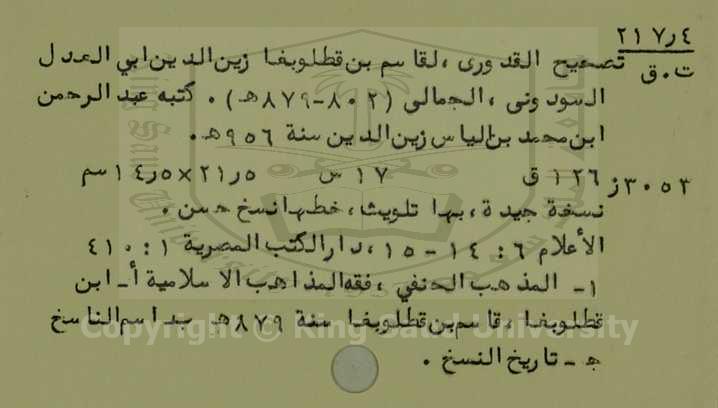 ٢١٧٫٤
ت.ق تصحيح القدورى، لقاسم بن قطلوبغا زين الدين ابي العدل
السودونى، الجمالى (٨٠٢-٨٧٩هـ). كتبه عبد الرحمن
ابن محمد بن الياس زين الدين سنة ٩٥٦هـ.
٣٠٥٣ز ١٢٦ ق ١٧ س ٢١٫٥×١٤٫٥ سم
نسخة جيدة، بها تلويث، خطها نسخ حسن.
الأعلام ٦: ١٤-١٥، دار الكتب المصرية ١: ٤١٠
١- المذهب الحنفي، فقه المذاهب الاسلامية أ- ابن
قطلوبغا، قاسم بن قطلوبغا سنة ٨٧٩هـ ب- اسم الناسخ
Copyright © King Saud University
ج- تاريخ النسخ.